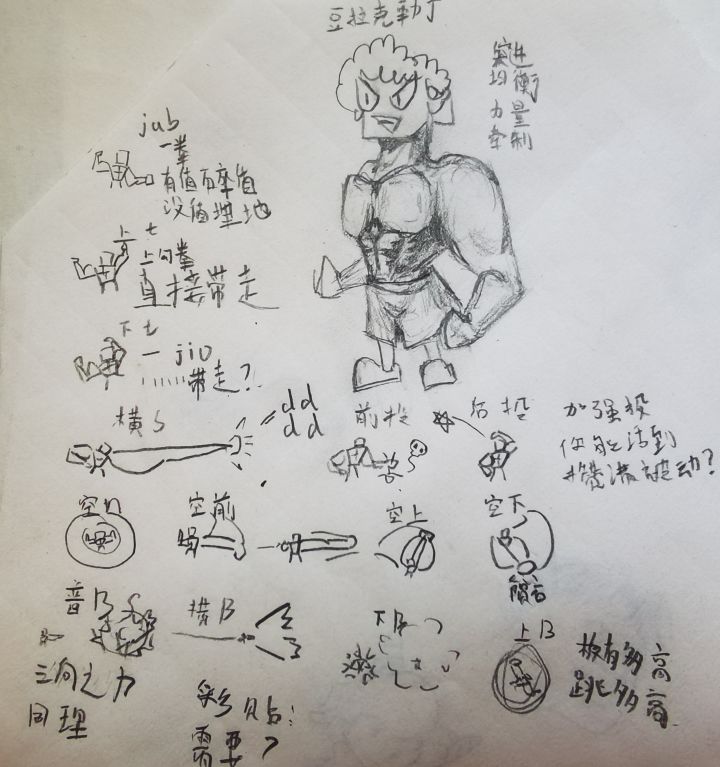 豆拉克勒丁
进衡量制
实均力牵
jub
一拳
有值百萃值
没值埋地
上七
上勾拳
直接带走
下七
一 jio
......带走?
横S
dd
dd
前投
后投
加强投
你能活到
攒满被动?
空N
空前
空上
空下
普B
横B
下B
上B
三向之力
同理
板有多高
跳多高
彩贴:
需要?